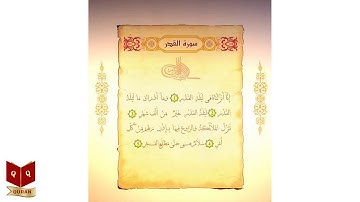 سورة القدر
إنا أنزلناه في ليلة القدر ١ وما أدراك ما ليلة
القدر ٢ ليلة القدر خير من ألف شهر ٣
تنزل الملائكة والروح فيها بإذن ربهم من كل
أمر ٤ سلام هي حتى مطلع الفجر ٥
QURAN